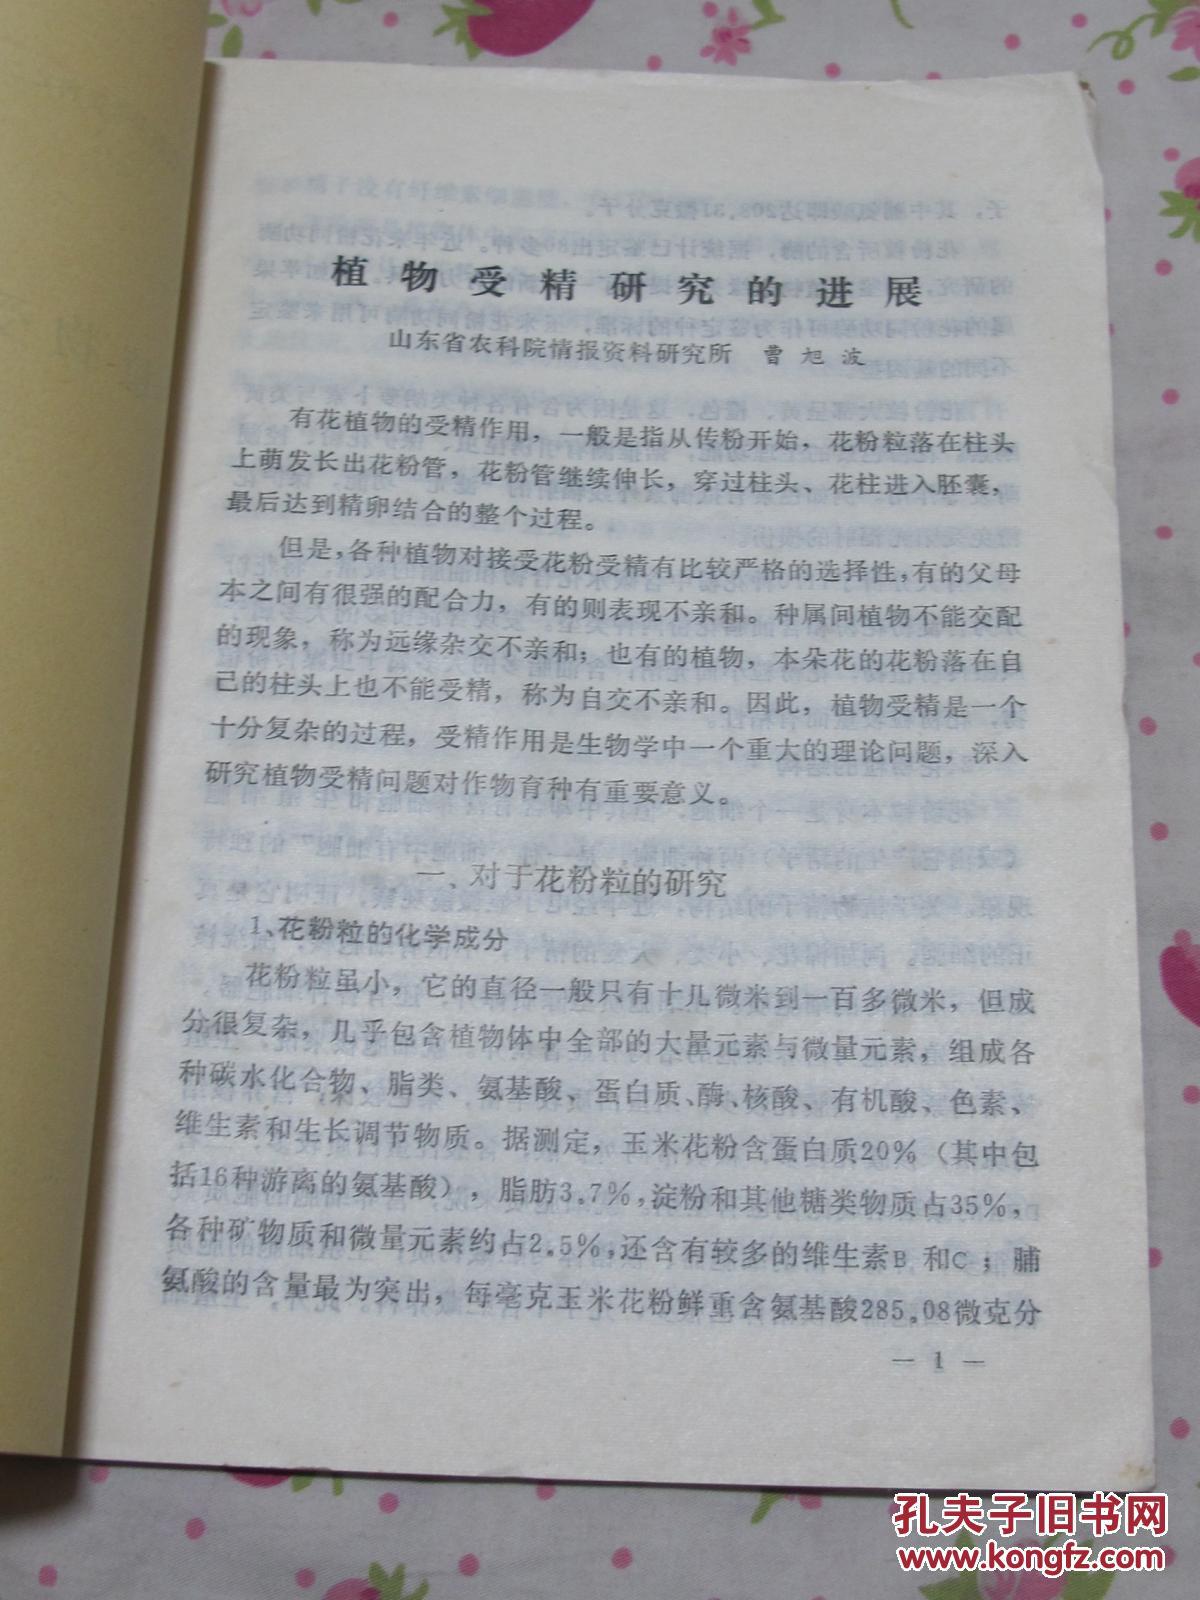 植物受精研究的进展
山东省农科院情报资料研究所 曹旭波
有花植物的受精作用，一般是指从传粉开始，花粉粒落在柱头
上萌发长出花粉管，花粉管继续伸长，穿过柱头、花柱进入胚囊，
最后达到精卵结合的整个过程。
但是，各种植物对接受花粉受精有比较严格的选择性，有的父母
本之间有很强的配合力，有的则表现不亲和。种属间植物不能交配
的现象，称为远缘杂交不亲和；也有的植物，本朵花的花粉落在自
己的柱头上也不能受精，称为自交不亲和。因此，植物受精是一个
十分复杂的过程，受精作用是生物学中一个重大的理论问题，深入
研究植物受精问题对作物育种有重要意义。
一、对于花粉粒的研究
1、花粉粒的化学成分
花粉粒虽小，它的直径一般只有十几微米到一百多微米，但成
分很复杂，几乎包含植物体中全部的大量元素与微量元素，组成各
种碳水化合物、脂类、氨基酸、蛋白质、酶、核酸、有机酸、色素、
维生素和生长调节物质。据测定，玉米花粉含蛋白质20%（其中包
括16种游离的氨基酸），脂肪3.7%，淀粉和其他糖类物质占35%，
各种矿物质和微量元素约占2.5%，还含有较多的维生素B和C；脯
氨酸的含量最为突出，每毫克玉米花粉鲜重含氨基酸285.08微克分
— 1 —
孔夫子旧书网
www.kongfz.com